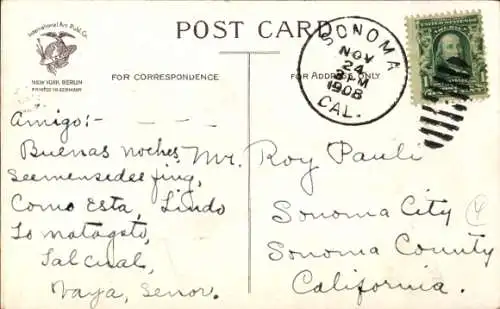 International Art Publ. Co.
NEW YORK BERLIN
PRINTED IN GERMANY
POST CARD
FOR CORRESPONDENCE
FOR ADDRESS ONLY
SONOMA
NOV
24
8 AM
1908
CAL.
Amigo:-
Buenas noches,
fing,
Como Esta, Lindo
Lo matagato,
Tal cual,
Vaya, Senor.
Mr. Roy Pauli
Sonoma City
Sonoma County
California.